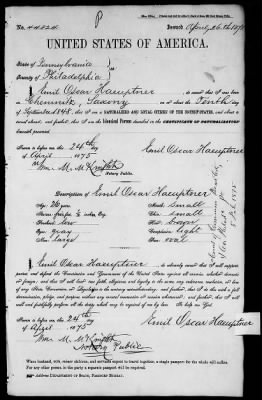 P
No. 44224 Issued April 26th 1875
UNITED STATES OF AMERICA.
State of Pennsylvania
County of Philadelphia
I Emil Oscar Haeuptner
Chemnitz, Saxony on or about the Tenth day
of September 1848, that I am a NATURALIZED AND LOYAL CITIZEN OF THE UNITED STATES, and about
to travel abroad; and further, that I am the identical Person described in the CERTIFICATE OF NATURALIZATION
herewith presented.
Sworn to before me, this 24th day
of April 1875
Wm. M. McKnight
Notary Public.
Emil Oscar Haeuptner
Description of Emil Oscar Haeuptner
Age: 26 years
Mouth: small
Stature: five feet
Chin: small
Eyes: gray
Complexion: light
Nose: large
Face: oval
I Emil Oscar Haeuptner do solemnly swear that I will support,
protect and defend the Constitution and Government of the United States against all enemies, whether domestic
or foreign; and that I will bear true faith, allegiance and loyalty to the same, any ordinance, resolution, or law
of any State, Convention, or Legislature to the contrary notwithstanding; and further, that I do this with a full
determination, pledge, and purpose, without any mental reservation or evasion whatsoever; and further, that I will
well and faithfully perform all the duties which may be required of me by law. So help me God.
Sworn to before me, this 24th day
of April 1875
Wm. M. McKnight
Notary Public
Emil Oscar Haeuptner
Where husband, wife, minor children, and servants expect to travel together, a single passport for the whole will suffice.
For any other person in the party a separate passport will be required.
Address DEPARTMENT OF STATE, PASSPORT BUREAU.